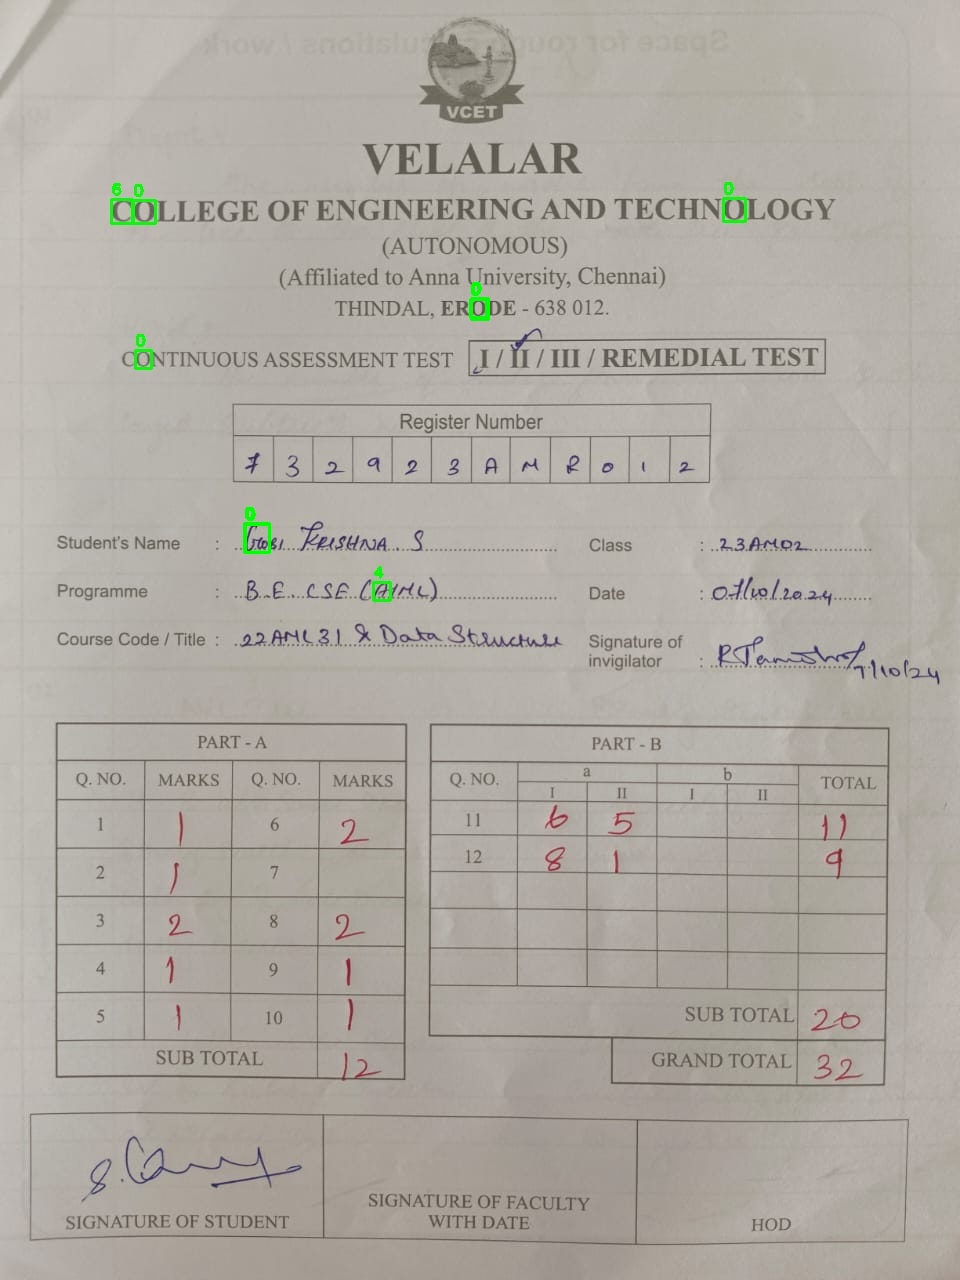 VCET
VELALAR
COLLEGE OF ENGINEERING AND TECHNOLOGY
(AUTONOMOUS)
(Affiliated to Anna University, Chennai)
THINDAL, ERODE - 638 012.
CONTINUOUS ASSESSMENT TEST I / II / III / REMEDIAL TEST
Register Number
7 3 2 9 2 3 A M R 0 1 2
Student's Name : GOBI KRISHNA. S Class : 23AM02
Programme : B.E. CSE (AIML) Date : 07/10/2024
Course Code / Title : 22AML31 & Data Structure Signature of invigilator : 7/10/24
PART - A
Q. NO. MARKS Q. NO. MARKS
1 1 6 2
2 1 7
3 2 8 2
4 1 9 1
5 1 10 1
SUB TOTAL 12
PART - B
Q. NO. a b TOTAL
I II I II
11 6 5 11
12 8 1 9
SUB TOTAL 20
GRAND TOTAL 32
SIGNATURE OF STUDENT
SIGNATURE OF FACULTY
WITH DATE
HOD